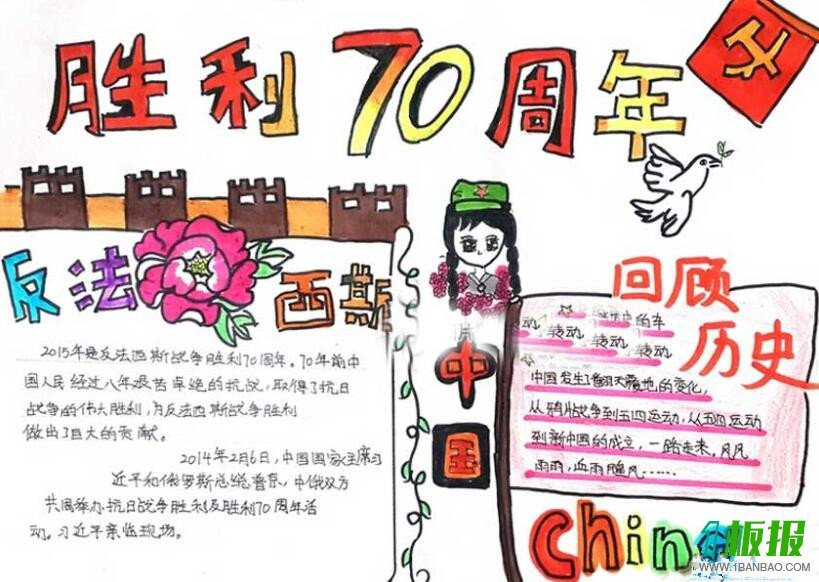 胜利70周年
反法西斯
2015年是反法西斯战争胜利70周年。70年前中
国人民经过八年艰苦卓绝的抗战，取得了抗日
战争的伟大胜利，为反法西斯战争胜利
做出了巨大的贡献。
2014年2月6日，中国国家主席习
近平和俄罗斯总统普京，中俄双方
共同举办抗日战争胜利及胜利70周年活
动。习近平亲临现场。
中国
回顾
历史
的车
动，转动，转动，转动
中国发生了翻天覆地的变化，
从鸦片战争到五四运动，从五四运动
到新中国的成立，一路走来，风风
雨雨，血雨腥风……
China
板报
WWW.1BANBAO.COM